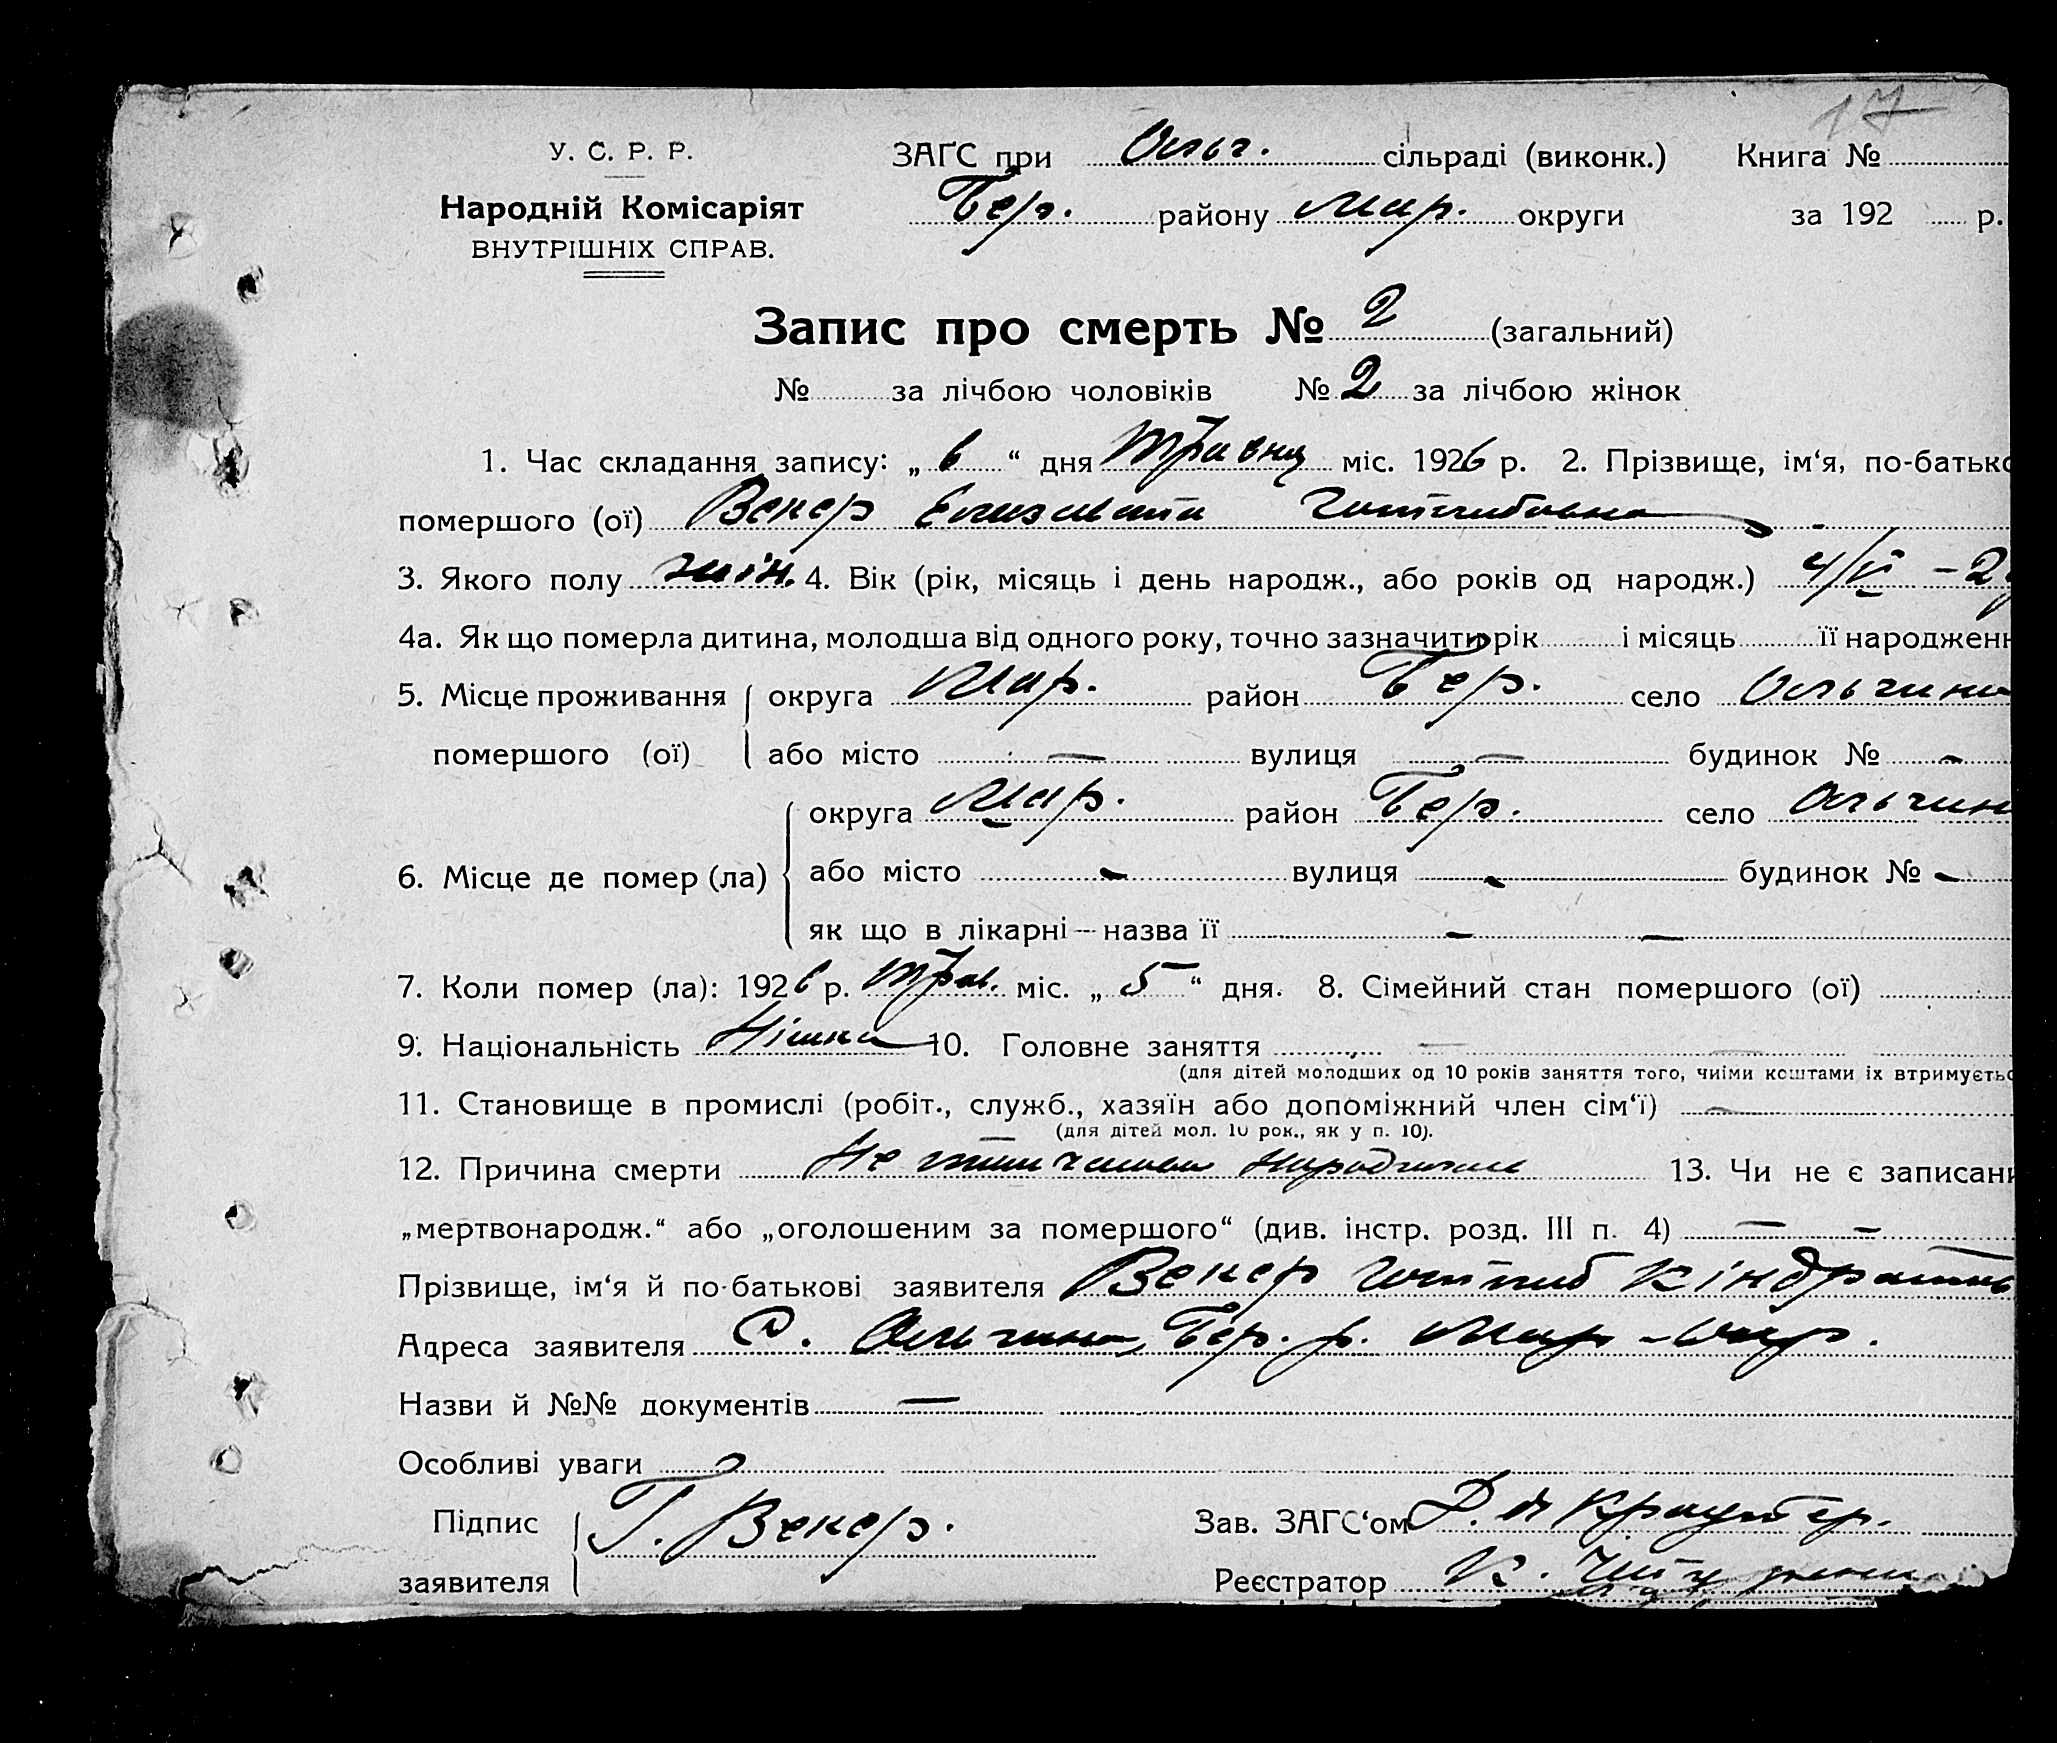 17
У. С. Р. Р. ЗАҐС при Ольг. сільраді (виконк.) Книга №
Народній Комісаріят Бер. району Мар. округи за 192 р.
ВНУТРІШНІХ СПРАВ.
Запис про смерть № 2 (загальний)
№ за лічбою чоловіків № 2 за лічбою жінок
1. Час складання запису: „ 6 “ дня травня міс. 1926 р. 2. Прізвище, ім‘я, по-батько
помершого (ої) Векер Єлизавета Готлибовна
3. Якого полу жін. 4. Вік (рік, місяць і день народж., або років од народж.) 4/V – 2
4а. Як що померла дитина, молодша від одного року, точно зазначити рік і місяць її народжен
5. Місце проживання округа Мар. район Бер. село Ольгино
помершого (ої) або місто — вулиця — будинок № –
округа Мар. район Бер. село Ольгин
6. Місце де помер (ла) або місто – вулиця – будинок № –
як що в лікарні — назва її – —
7. Коли помер (ла): 1926 р. трав. міс. „ 5 “ дня. 8. Сімейний стан помершого (ої)
9. Національність Німка 10. Головне заняття —
(для дітей молодших од 10 років заняття того, чиїми коштами їх втримуєтьс
11. Становище в промислі (робіт., служб., хазяїн або допоміжний член сім‘ї) —
(для дітей мол. 10 рок., як у п. 10).
12. Причина смерти Не 13. Чи не є записан
„мертвонародж.“ або „оголошеним за помершого“ (див. інстр. розд. III п. 4) — –
Прізвище, ім‘я й по-батькові заявителя Векер Готлиб Кіндратов
Адреса заявителя С. Ольгино, Бер. р. Мар – окр.
Назви й №№ документів —
Особливі уваги
Підпис Г. Векер. Зав. ЗАГС‘ом Краутер.
заявителя Реєстратор К.